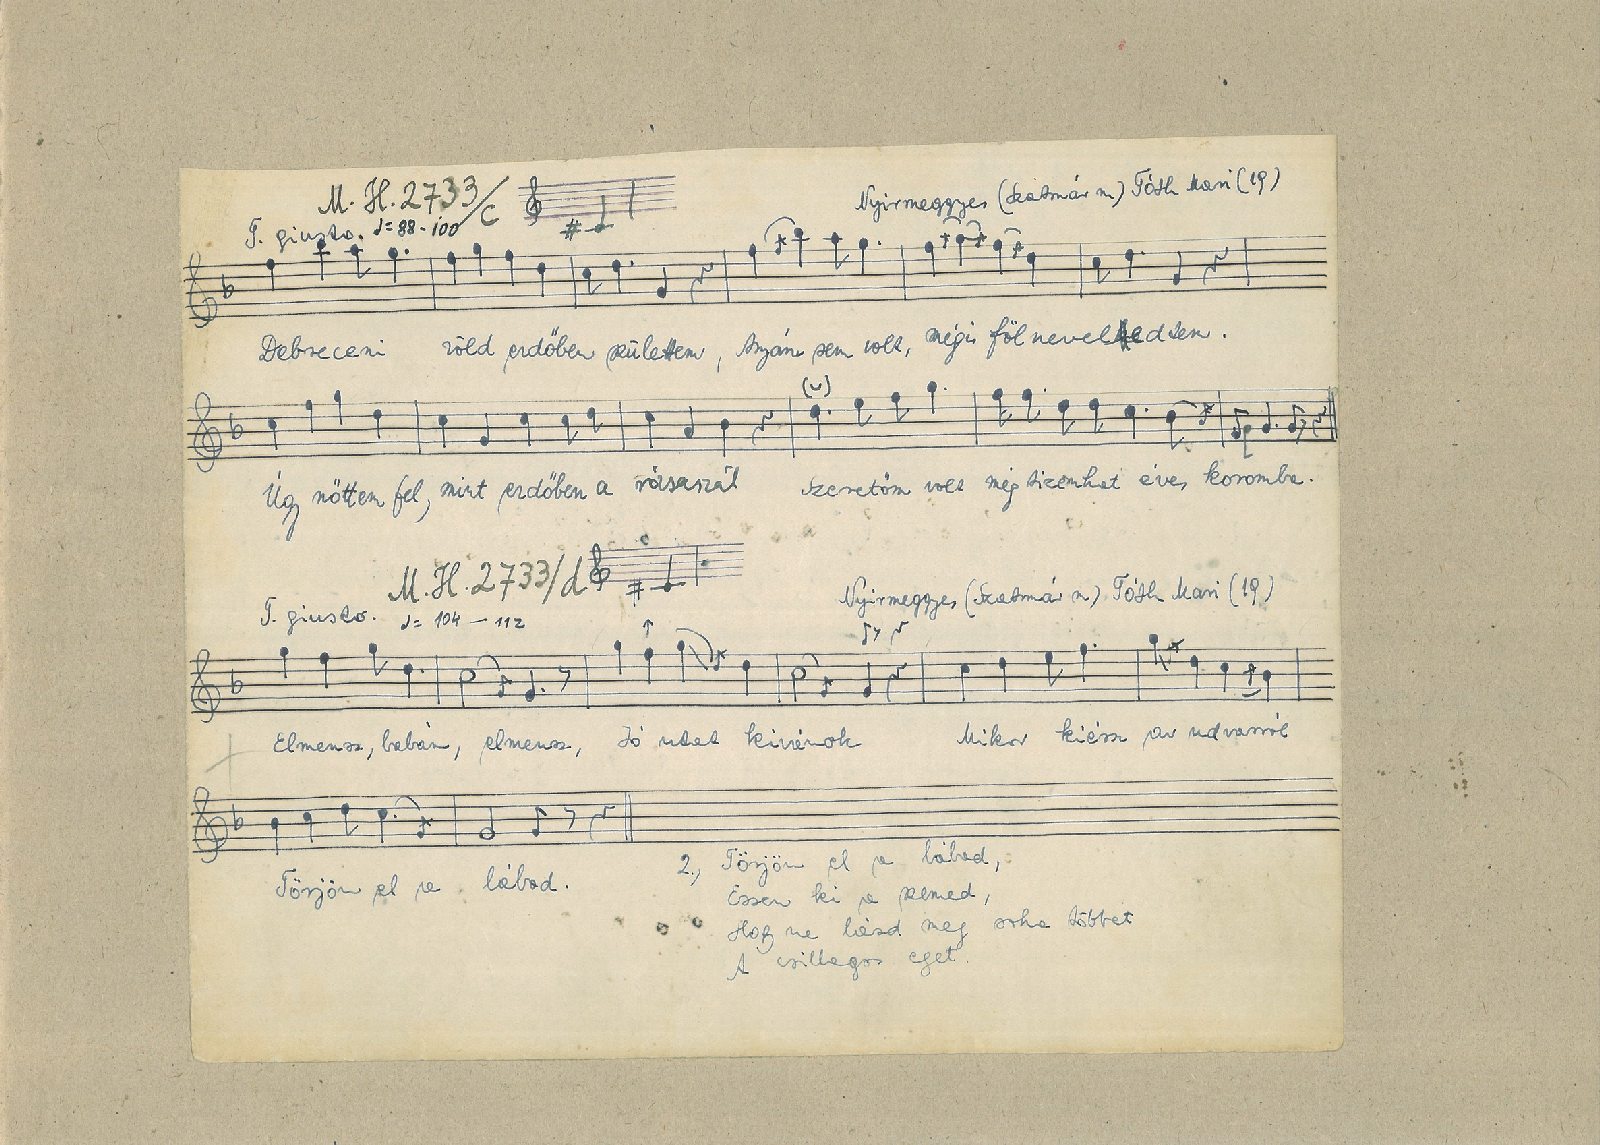 M. H. 2733/c
Nyirmeggyes (Szatmár m.) Tóth Mari (19)
T. giusto. ♩= 88 - 100
Debreceni zöld erdőben születtem, Anyám sem volt, mégis fölnevelkedtem.
Úgy nőttem fel, mint erdőben a rózsaszál Szeretőm volt még tizenhat éves koromba.
M. H. 2733/d
Nyirmeggyes (Szatmár m.) Tóth Mari (19)
T. giusto. ♩= 104 - 112
Elmensz, babám, elmensz, Jó utat kivánok Mikor kiérsz az udvarról
Törjön el a lábad.
2., Törjön el a lábad,
Essen ki a szemed,
Hogy ne lásd meg soha többet
A csillagos eget.